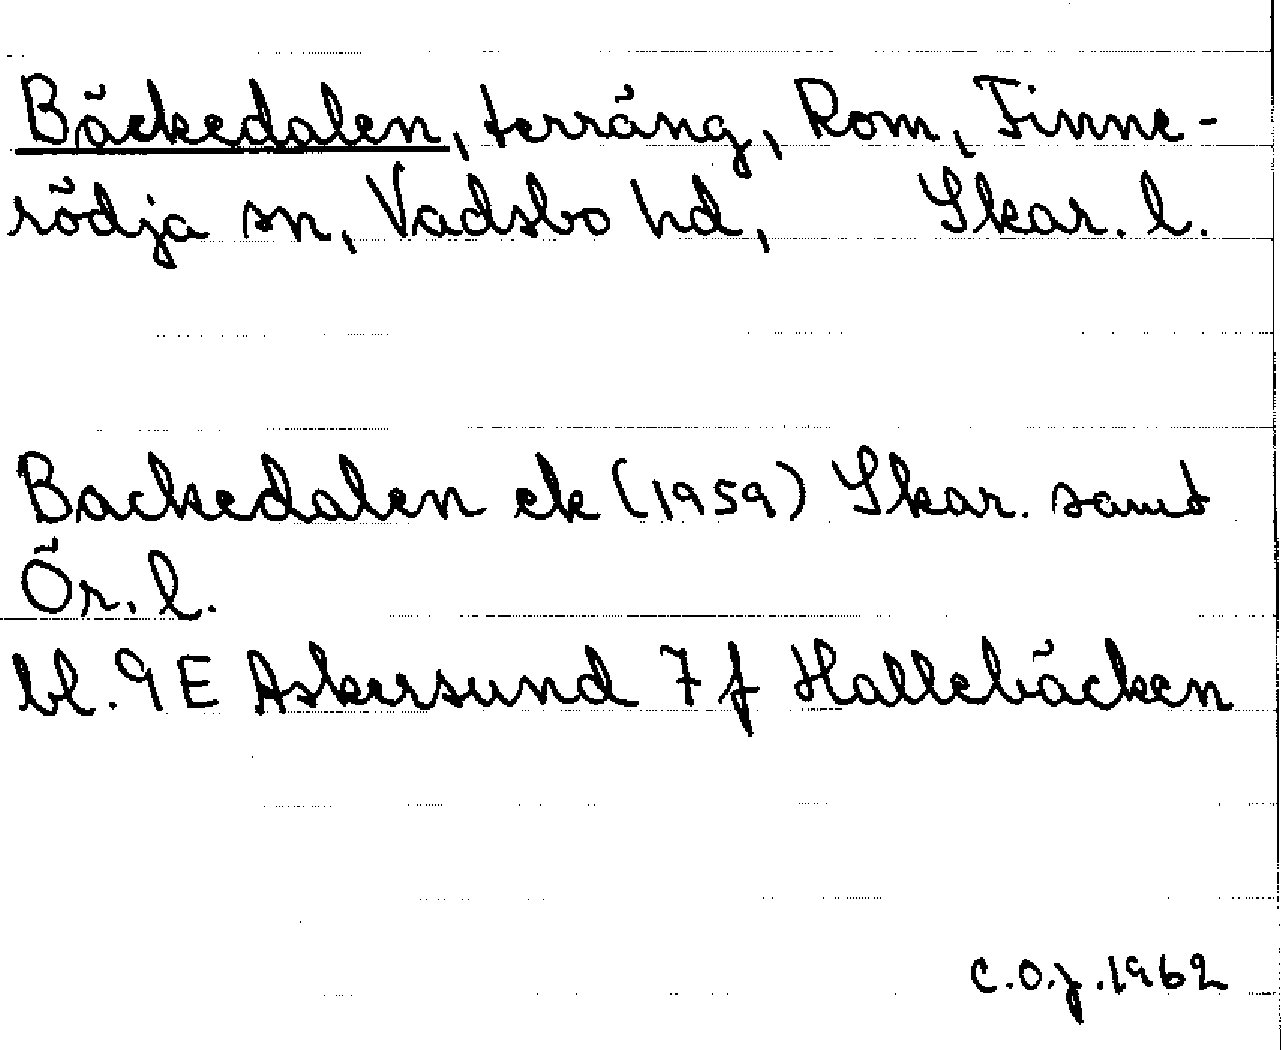 Bäckedalen, terräng, Rom, Finne-
rödja sn, Vadsbo hd, Skar. l.
Backedalen ek (1959) Skar. samt
Ör. l.
bl. 9E Askersund 7 f Hallebäcken
C.O.J. 1962